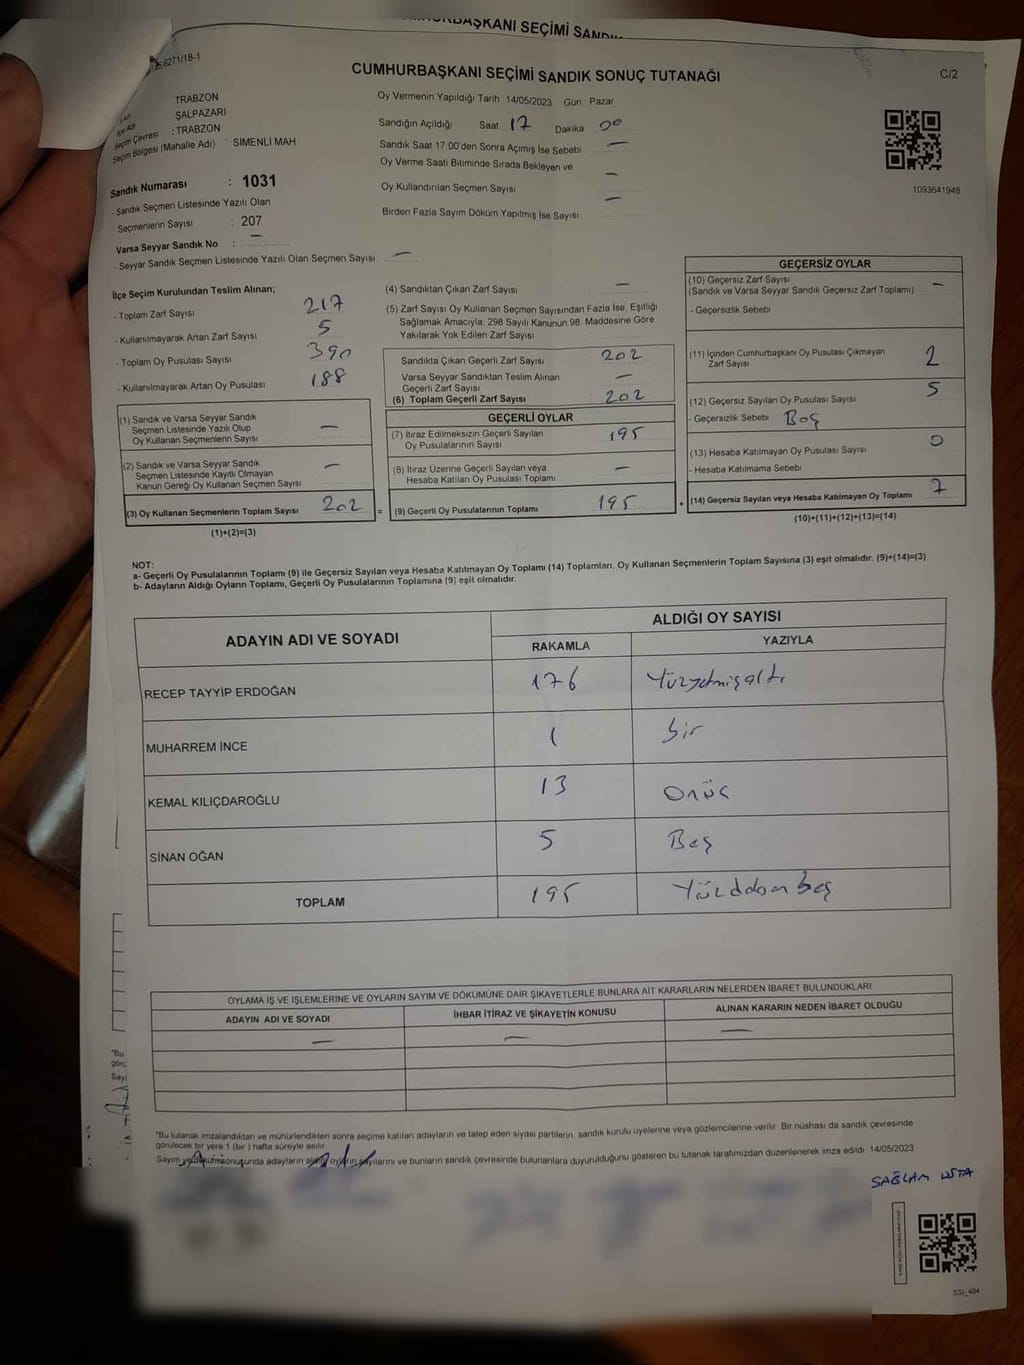 CUMHURBAŞKANI SEÇİMİ SANDIK SONUÇ TUTANAĞI
C/2
TRABZON
ŞALPAZARI
Seçim Çevresi : TRABZON
Seçim Bölgesi (Mahalle Adı) : SİMENLİ MAH
Sandık Numarası : 1031
- Sandık Seçmen Listesinde Yazılı Olan
Seçmenlerin Sayısı : 207
Varsa Seyyar Sandık No : —
- Seyyar Sandık Seçmen Listesinde Yazılı Olan Seçmen Sayısı —
Oy Vermenin Yapıldığı Tarih 14/05/2023 Gün Pazar
Sandığın Açıldığı Saat 17 Dakika 00
Sandık Saat 17.00'den Sonra Açımış İse Sebebi —
Oy Verme Saati Bitiminde Sırada Bekleyen ve
Oy Kullandırılan Seçmen Sayısı —
Birden Fazla Sayım Döküm Yapılmış İse Sayısı —
1093641948
İlçe Seçim Kurulundan Teslim Alınan;
- Toplam Zarf Sayısı 217
- Kullanılmayarak Artan Zarf Sayısı 5
- Toplam Oy Pusulası Sayısı 390
- Kullanılmayarak Artan Oy Pusulası 188
(1) Sandık ve Varsa Seyyar Sandık
Seçmen Listesinde Yazılı Olup
Oy Kullanan Seçmenlerin Sayısı —
(2) Sandık ve Varsa Seyyar Sandık
Seçmen Listesinde Kayıtlı Olmayan
Kanun Gereği Oy Kullanan Seçmen Sayısı —
(3) Oy Kullanan Seçmenlerin Toplam Sayısı 202 =
(1)+(2)=(3)
(4) Sandıktan Çıkan Zarf Sayısı —
(5) Zarf Sayısı Oy Kullanan Seçmen Sayısından Fazla İse, Eşitliği
Sağlamak Amacıyla, 298 Sayılı Kanunun 98. Maddesine Göre
Yakılarak Yok Edilen Zarf Sayısı —
Sandıkta Çıkan Geçerli Zarf Sayısı 202
Varsa Seyyar Sandıktan Teslim Alınan
Geçerli Zarf Sayısı —
(6) Toplam Geçerli Zarf Sayısı 202
GEÇERLİ OYLAR
(7) İtiraz Edilmeksizin Geçerli Sayılan
Oy Pusulalarının Sayısı 195
(8) İtiraz Üzerine Geçerli Sayılan veya
Hesaba Katılan Oy Pusulası Toplamı —
(9) Geçerli Oy Pusulalarının Toplamı 195 +
GEÇERSİZ OYLAR
(10) Geçersiz Zarf Sayısı
(Sandık ve Varsa Seyyar Sandık Geçersiz Zarf Toplamı) —
- Geçersizlik Sebebi
(11) İçinden Cumhurbaşkanı Oy Pusulası Çıkmayan
Zarf Sayısı 2
(12) Geçersiz Sayılan Oy Pusulası Sayısı 5
- Geçersizlik Sebebi Boş
(13) Hesaba Katılmayan Oy Pusulası Sayısı 0
- Hesaba Katılmama Sebebi
(14) Geçersiz Sayılan veya Hesaba Katılmayan Oy Toplamı 7
(10)+(11)+(12)+(13)=(14)
NOT:
a- Geçerli Oy Pusulalarının Toplamı (9) ile Geçersiz Sayılan veya Hesaba Katılmayan Oy Toplamı (14) Toplamları, Oy Kullanan Seçmenlerin Toplam Sayısına (3) eşit olmalıdır. (9)+(14)=(3)
b- Adayların Aldığı Oyların Toplamı, Geçerli Oy Pusulalarının Toplamına (9) eşit olmalıdır.
ADAYIN ADI VE SOYADI
ALDIĞI OY SAYISI
RAKAMLA YAZIYLA
RECEP TAYYİP ERDOĞAN 176 Yüzyetmişaltı
MUHARREM İNCE 1 bir
KEMAL KILIÇDAROĞLU 13 Onüç
SİNAN OĞAN 5 Beş
TOPLAM 195
OYLAMA İŞ VE İŞLEMLERİNE VE OYLARIN SAYIM VE DÖKÜMÜNE DAİR ŞİKAYETLERLE BUNLARA AİT KARARLARIN NELERDEN İBARET BULUNDUKLARI
ADAYIN ADI VE SOYADI İHBAR İTİRAZ VE ŞİKAYETİN KONUSU ALINAN KARARIN NEDEN İBARET OLDUĞU
— — —
*Bu tutanak imzalandıktan ve mühürlendikten sonra seçime katılan adayların ve talep eden siyasi partilerin sandık kurulu üyelerine veya gözlemcilerine verilir. Bir nüshası da sandık çevresinde
görülecek bir yere 1 (bir) hafta süreyle asılır.
Sayım ve sonuçunda adayların oyların sayılarını ve bunların sandık çevresinde bulunanlara duyurulduğunu gösteren bu tutanak tarafımızdan düzenlenerek imza edildi. 14/05/2023
SAĞLAM USTA